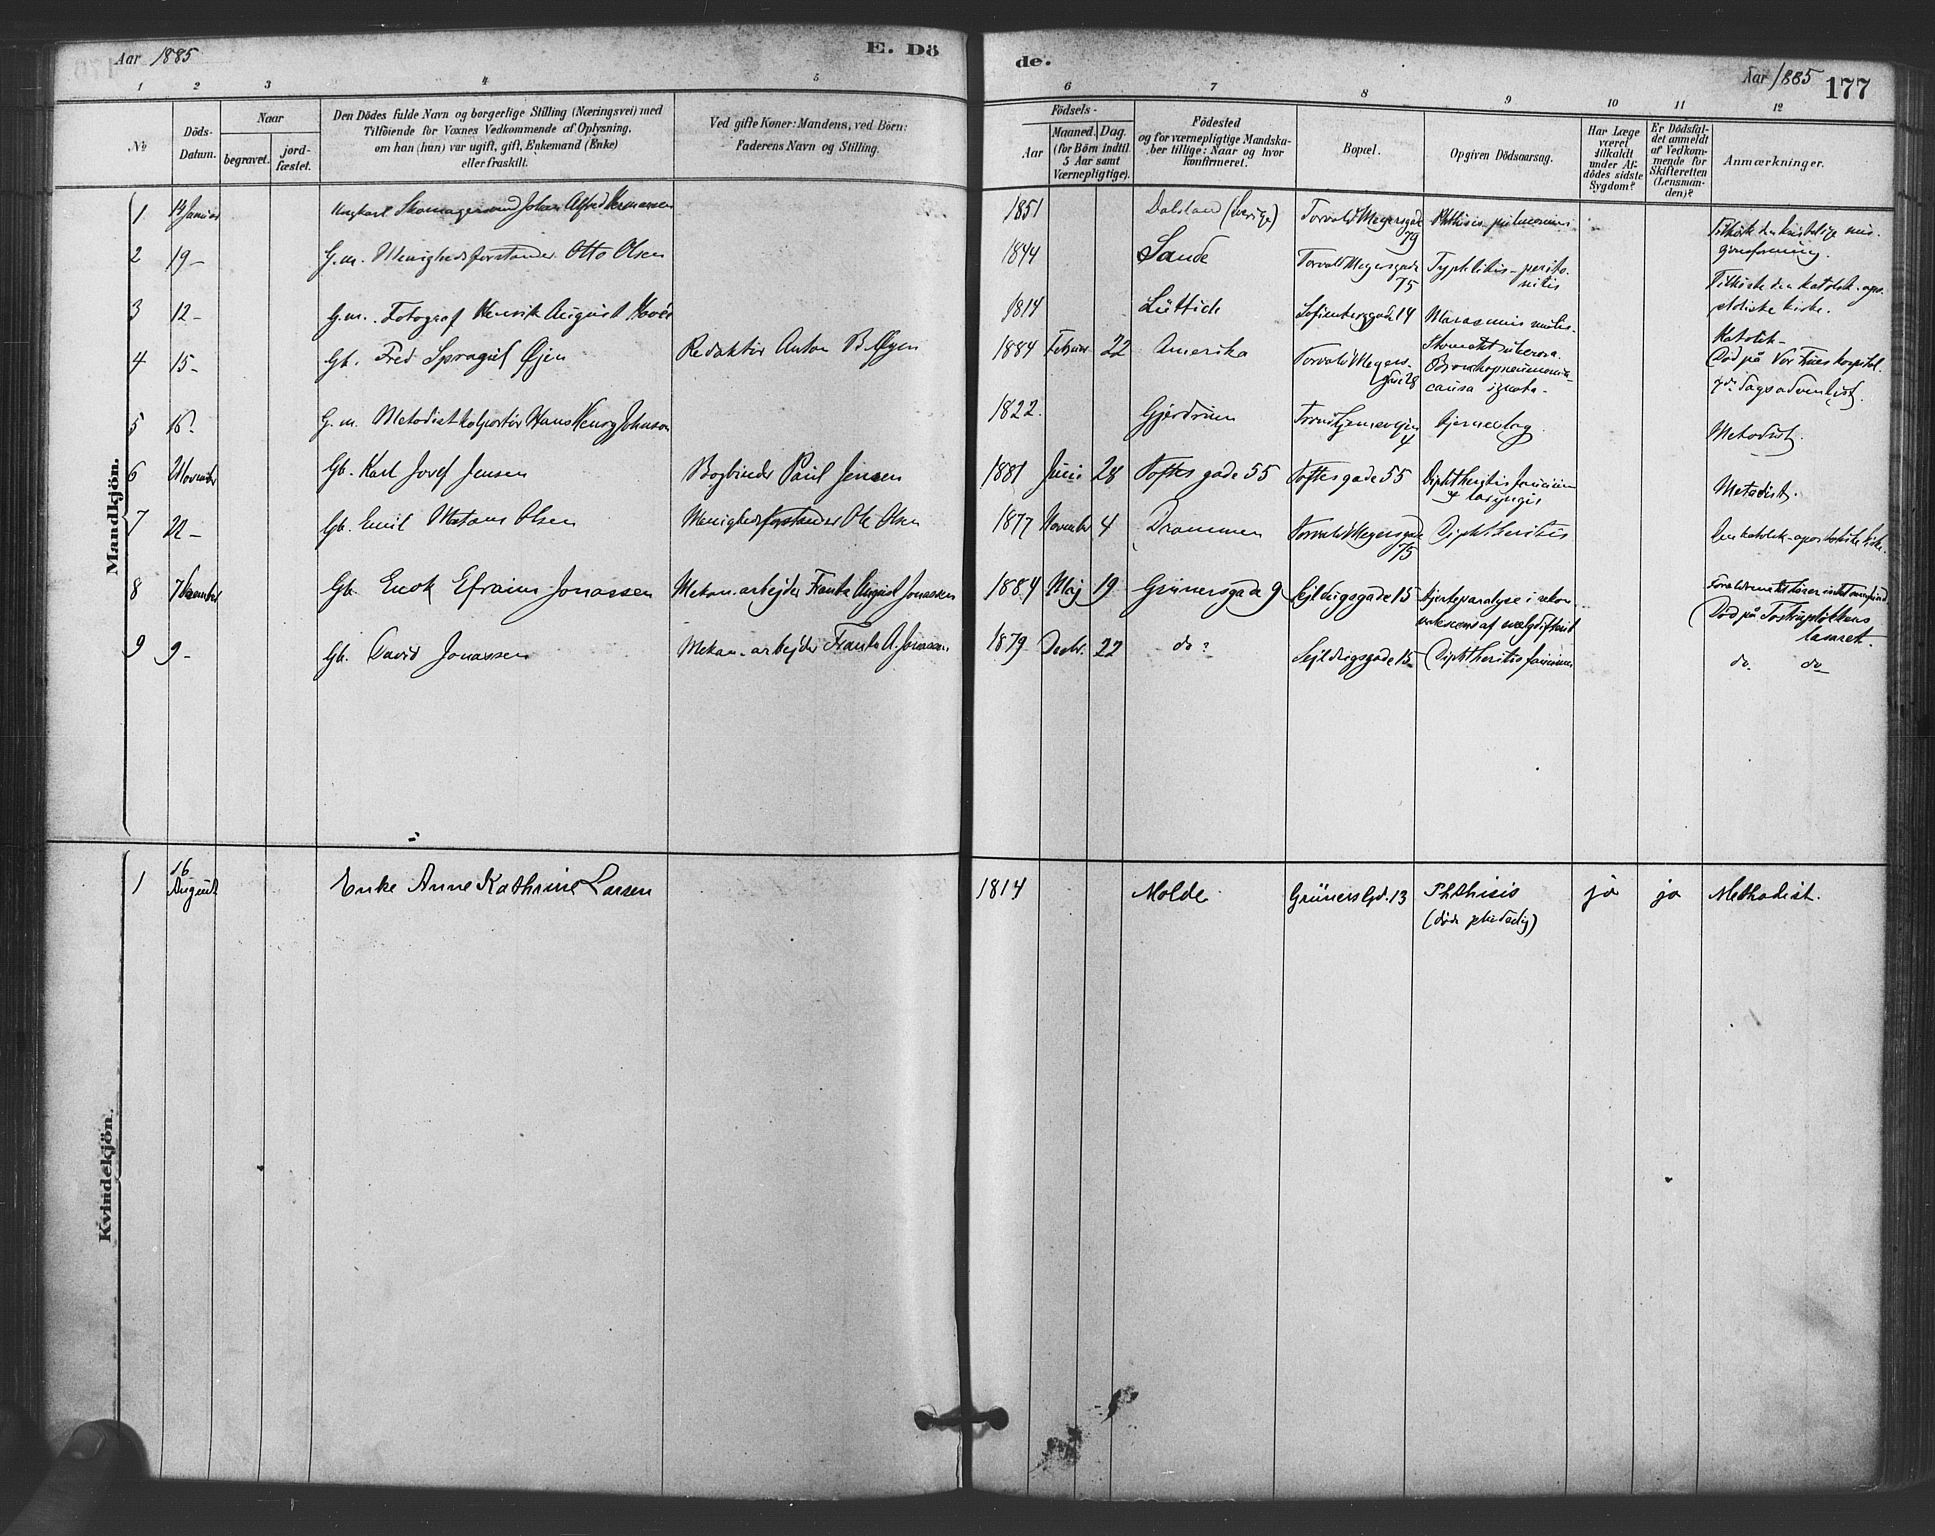 Aar 1885
E. Dö
de.
Aar 1885 177
1 2 3 4 5 6 7 8 9 10 11 12
No
Döds-
Datum.
Naar
begravet.
jord-
fæstet.
Den Dödes fulde Navn og borgerlige Stilling (Næringsvei) med
Tilföiende for Voxnes Vedkommende af Oplysning,
om han (hun) var ugift, gift, Enkemand (Enke)
eller fraskilt.
Ved gifte Koner: Mandens, ved Börn:
Faderens Navn og Stilling.
Födsels-
Aar
Maaned. Dag.
(for Börn indtil
5 Aar samt
Værnepligtige).
Födested
og for værnepligtige Mandska-
ber tillige: Naar og hvor
konfirmeret.
Bopæl.
Opgiven Dödsaarsag.
Har Læge
været
tilkaldt
under Af-
dödes sidste
Sygdom?
Er Dödsfal-
det anmeldt
af Vedkom-
mende for
Skifteretten
(Lensman-
den)?
Anmærkninger.
Mandkjön.
1 14 Januar Ungkarl Skomagersvend Johan Alfred Hermansen 1851 Dalsland (Sverige) Torvald Meyersgade 79 Phthisis pulmonum
2 19 – G.m. Menighedsforstander Otto Olsen 1844 Sande Torvald Meyersgade 75 Typhlitis – perito-
nitis
3 12 – G.m. Fotograf Henrik August 1814 Lüttich Sofienberggade 14 Marasmus
4 15 – Gb. Fred Øjen Redaktör Anton B. Øyen 1884 Februar 22 Amerika Torvald Meyers-
gade 28 Bronchopneumonia
causa ignota. Katolik –
Död på Vor Frues hospital.
5 16 G.m. Metodistkolportör Hans Henry Johnson 1822. Gjerdrum 4 Metodist.
6 Gb. Karl Josef Jensen Bogbinder Paul Jensen 1881 Juni 28 Toftesgade 55 Toftesgade 55 Diphtheritis faucium
& laryngis Metodist.
7 22 – Gb. Emil Olsen Menighedsforstander Ole Olsen 1877 November 4 Drammen Torvald Meyersgade 75 Diphtheritis Den katolsk-apostoliske kirke.
8 7 Gb. Enok Efraim Jonassen Mekan. arbejder Frants August Jonassen 1884 Maj 19 Grünersgade 9 Sejldugsgade 15 Hjerteparalyse i
af
Död på
lasaret.
9 9 – Gb. David Jonassen Mekan. arbejder Frants A. Jonassen 1879 Decbr. 22 do? Sejldugsgade 15 Diphtheritis faucium do do
Kvindekjön.
1 16 August Enke Anne Kathrine Larsen 1814 Molde Grüners Gd. 13 Phthisis ja ja Methodist.